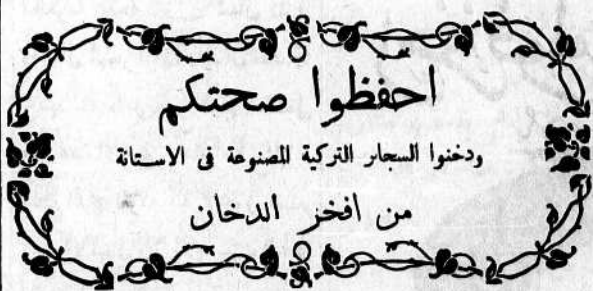 احفظوا صحتكم
ودخنوا السجاىر التركية المصنوعة فى الاستانة
من افخر الدخان